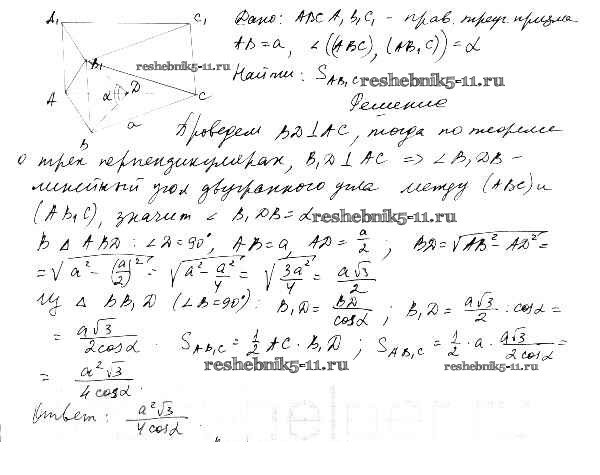 A₁ C₁ Дано: ABCA₁B₁C₁ - прав. треуг. призма
AB = a, ∠((ABC), (AB₁C)) = α
B₁ reshebnik5-11.ru Найти: S_{AB₁C} reshebnik5-11.ru
A α D C Решение
a B Проведем BD⊥AC, тогда по теореме
о трех перпендикулярах, B₁D⊥AC => ∠B₁DB -
линейный угол двугранного угла между (ABC) и
(AB₁C), значит ∠B₁DB = α reshebnik5-11.ru
В △ABD: ∠D = 90°, AB = a, AD = a/2; BD = √(AB² - AD²) =
= √(a² - (a/2)²) = √(a² - a²/4) = √(3a²/4) = a√3/2
Из △BB₁D (∠B = 90°): B₁D = BD/cosα; B₁D = a√3/2 : cosα =
= a√3/2cosα. S_{AB₁C} = 1/2 AC · B₁D; S_{AB₁C} = 1/2 · a · a√3/2cosα =
reshebnik5-11.ru reshebnik5-11.ru
= a²√3/4cosα.
Ответ: a²√3/4cosα.